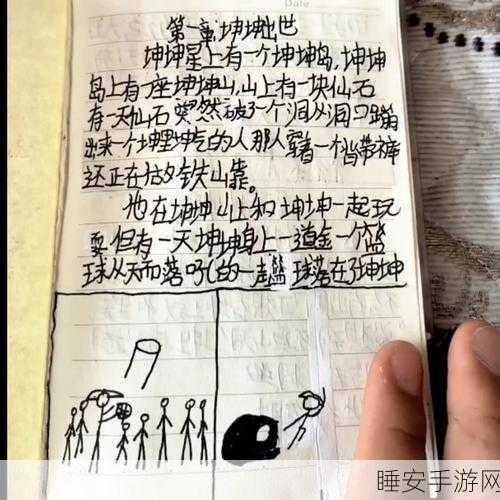 Date
第一章坤坤出世
坤坤星上有一个坤坤岛,坤坤
岛上有一座坤坤山,山上有一块仙石
有一天仙石突然破了一个洞从洞口蹦
出来一个坤里坤气的人那人穿着一个背带裤
还正在放铁山靠。
他在坤坤山上和坤坤一起玩
耍但有一天坤坤身上一道金一个篮
球从天而落吼的一声篮球落在了坤坤
睡安手游网